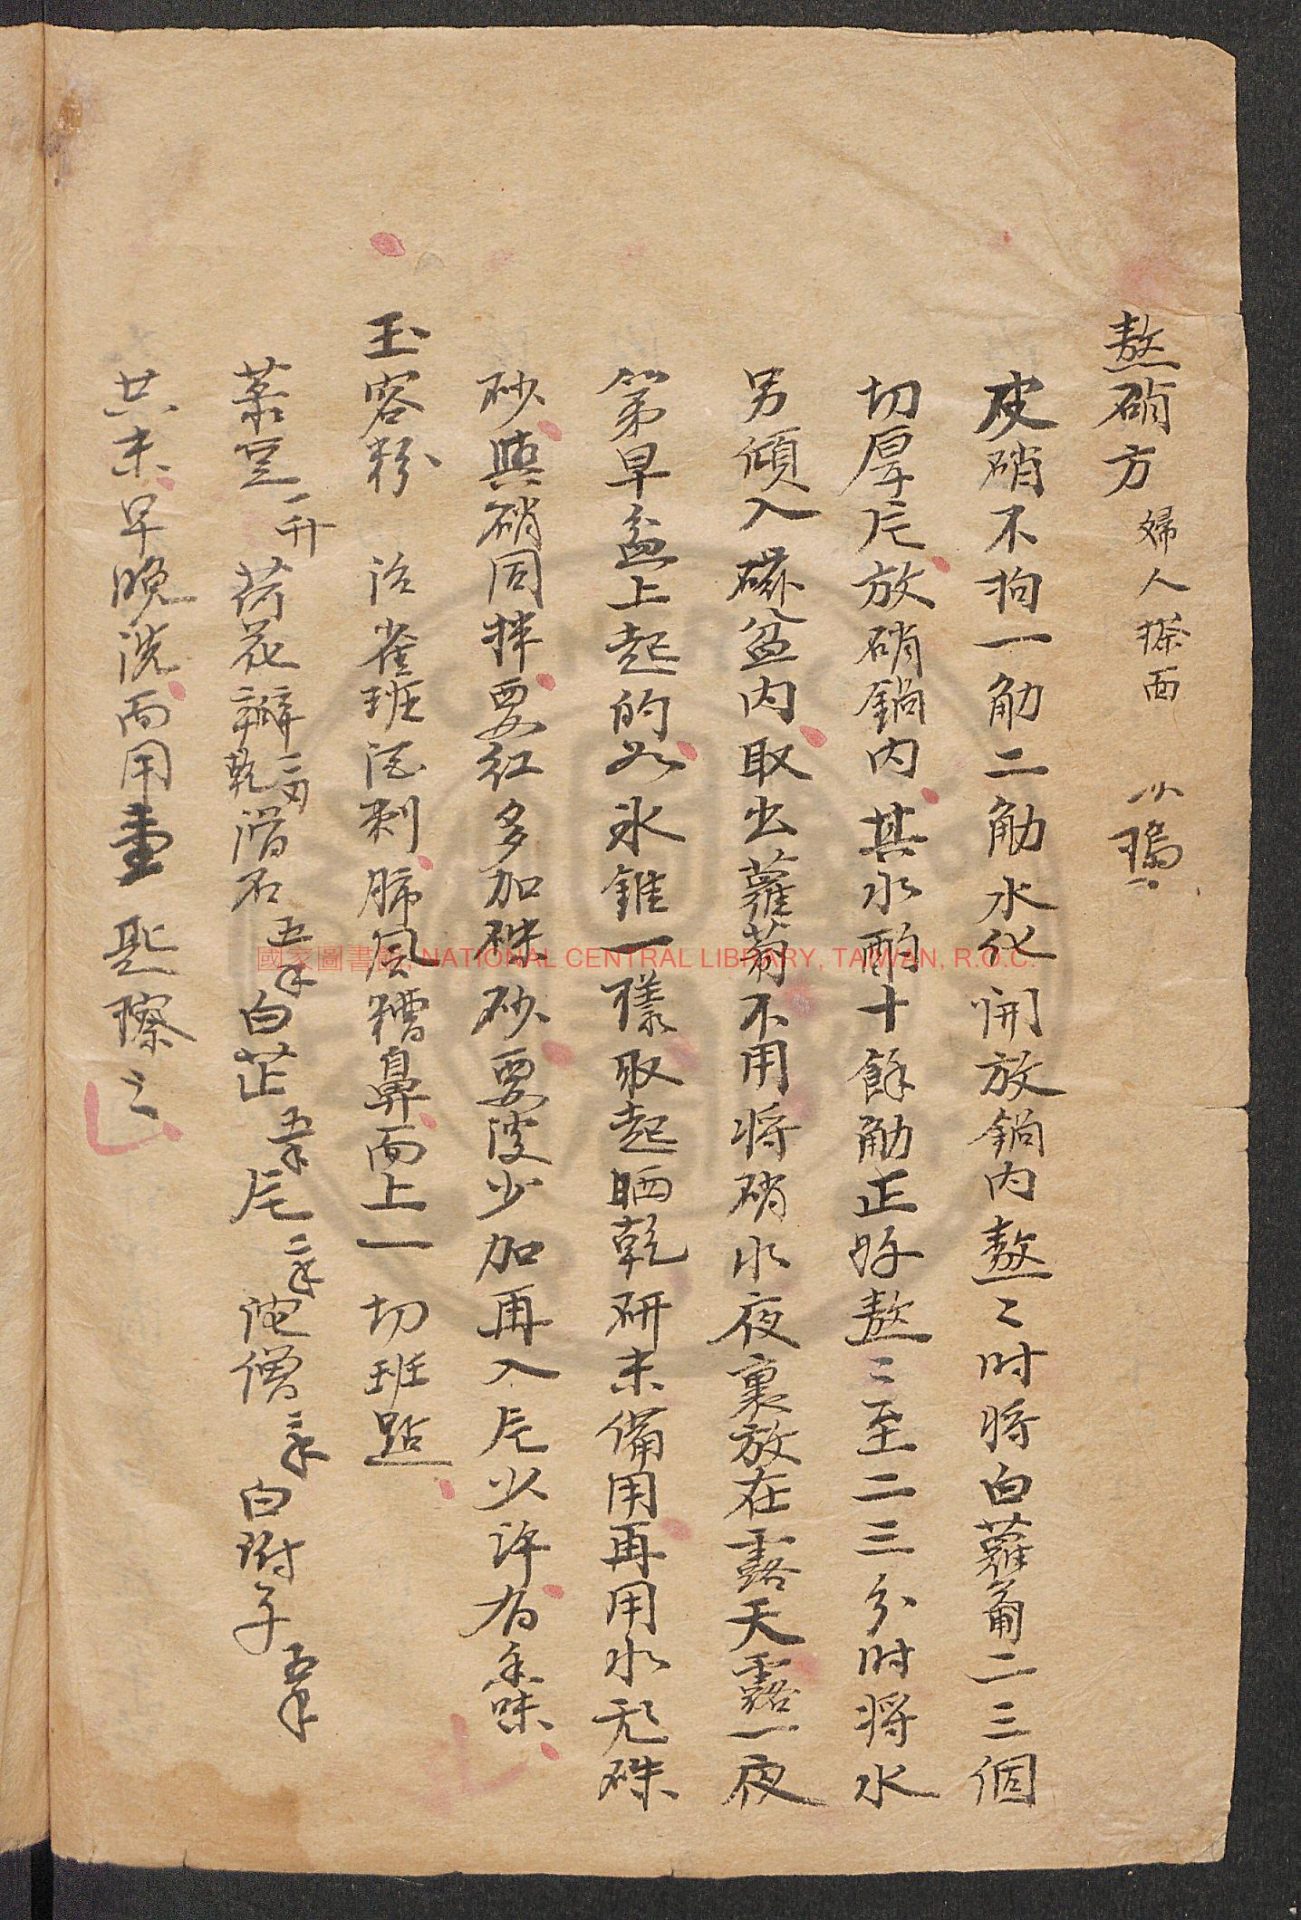 熬硝方 婦人搽面 小瑪
皮硝不拘一觔二觔水化開放鍋内熬〻时將白蘿蔔二三個
切厚片放硝鍋内其水酌十餘觔正好熬〻至二三分时將水
另傾入磁盆内取出蘿蔔不用將硝水夜裏放在露天露一夜
第早盆上起的如氷錐一樣取起晒乾研末備用再用水飛硃
砂與硝同拌要紅多加硃砂要淡少加再入片以許有香味
玉容粉 治雀班酒刺肺風糟鼻面上一切班點
菉豆一升荷花瓣乾滑石五錢白芷五錢片二錢陀僧二錢白附子五錢
共末早晚洗面用壹匙擦之
國家圖書館, NATIONAL CENTRAL LIBRARY, TAIWAN, R.O.C.